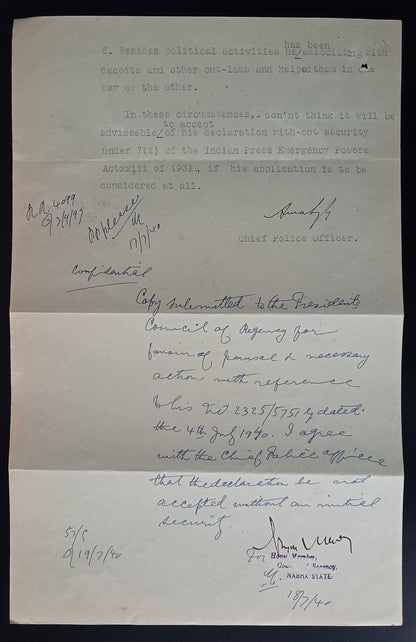 6. Besides political activities he/ has been associating with
dacoits and other out-laws and helpedthem in one
way or the other.
In these circumstances,I don'nt think it will be
adviseable/ to accept of his declaration with-out security
under 7(1) of the Indian Press Emergency Powers
Actxxiii of 1931., if his application is to be
considered at all.
Chief Police Officer.
R.R. 4099
17/7/40
Confidential
Copy submitted to the President,
Council of Regency for
favour of perusal & necessary
action with reference
to his No 2325/575/ dated
the 4th July 1940. I agree
with the Chief Police officer
that the declaration be not
accepted without an initial
security.
57/C
19/7/40
For Home Member,
Council of Regency,
NABHA STATE.
18/7/40